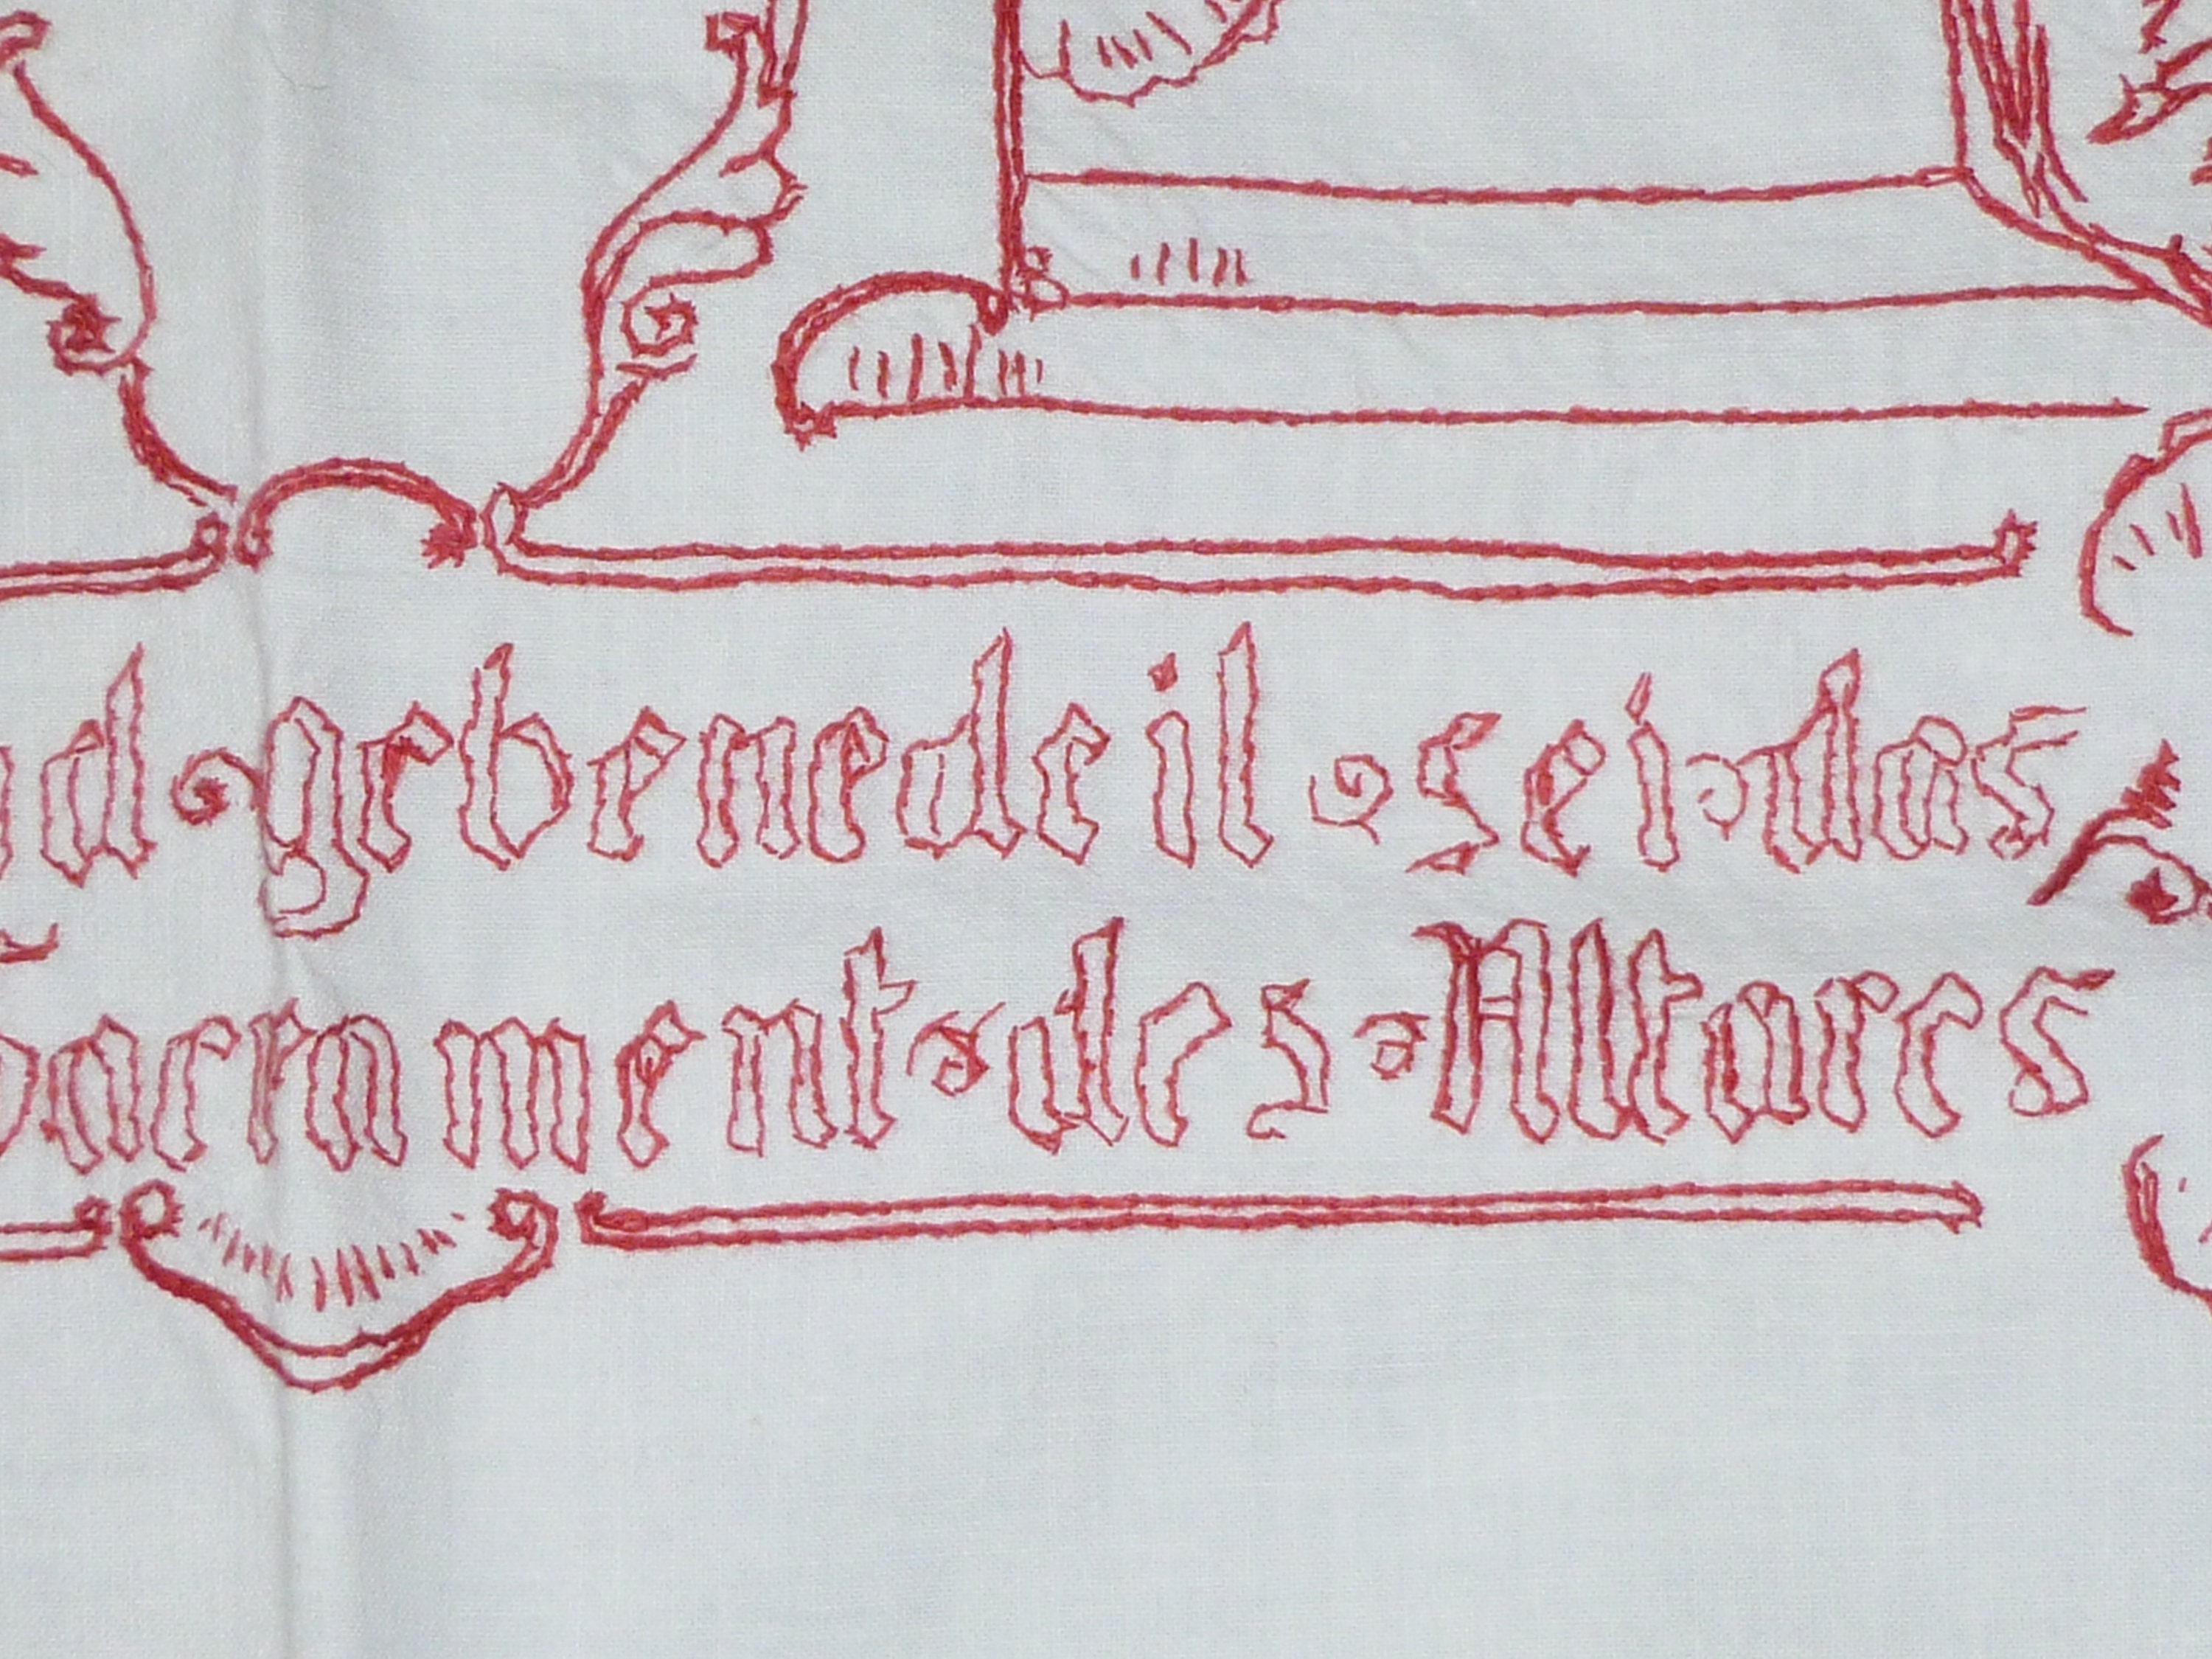 nd gebenedeit sei das
Sacrament des Altares